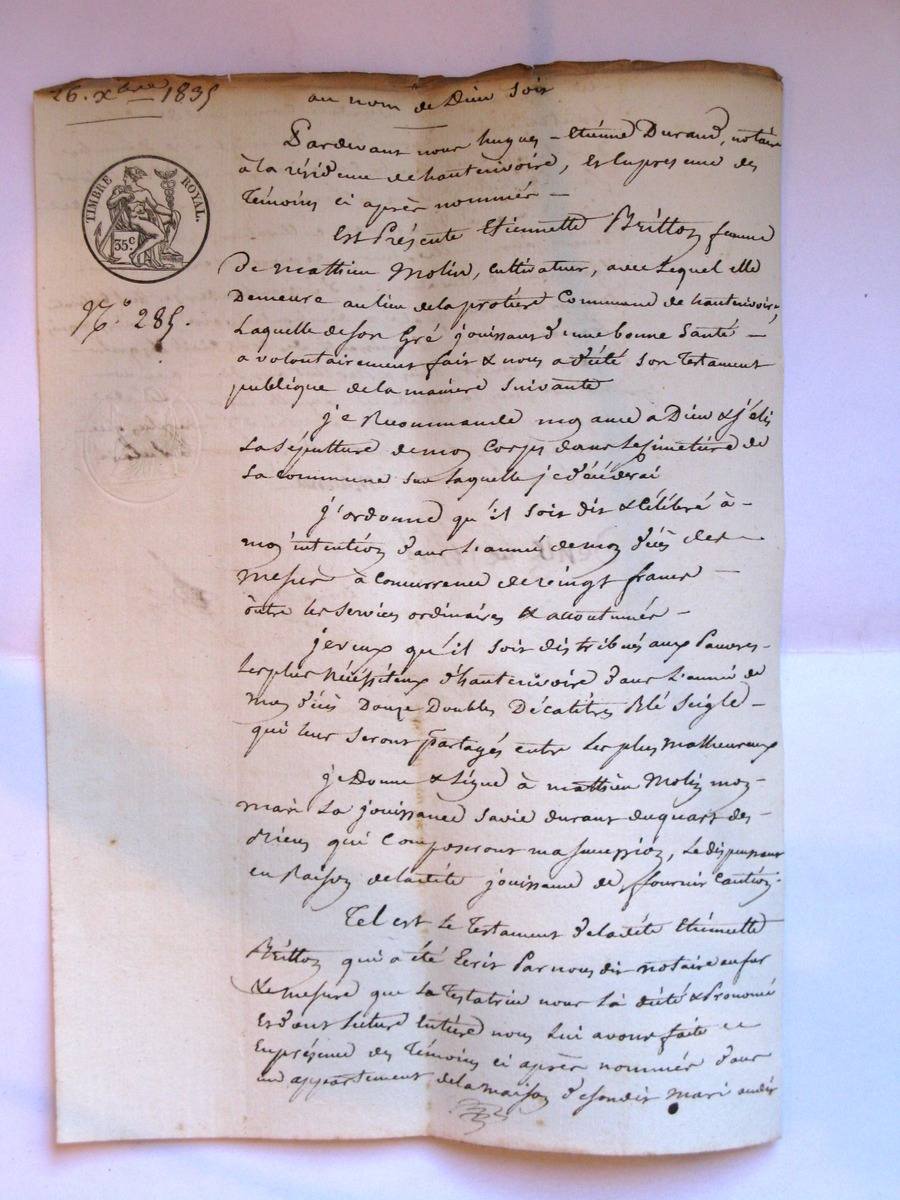 26. xbre 1835
au nom de Dieu soit
TIMBRE ROYAL.
35 c
No. 285.
Pardevant nous hugues-Etienne Durand, notaire
à la résidence de hauterivoire, Et en presence des
Témoins ci après nommés —
Est Présente Etiennette Britton femme
De mathieu Molin, cultivateur, avec Lequel elle
Demeure au lieu de la protiere Commune de hauterivoire,
Laquelle de son Gré jouissant d'une bonne santé —
a volontairement fait & nous a dicté son Testament
publique de la maniere suivante
je Recommande mon ame a Dieu & j'élis
La sépulture de mon Corps dans le Cimetière de
La commune sur laquelle je décéderai
j'ordonne qu'il soit dit & Célébré à -
mon intention dans L'année de mon décès des
messes à Concurrence de vingt francs —
outre les services ordinaires & accoutumés —
je veux qu'il soit distribués aux Pauvres -
Les plus nécéssiteux d'hauterivoire dans L'année de
mon décès Douze Doubles Décalitres Blé seigle —
qui leur seront partagés entre Les plus malheureux
je Donne & Légue à mathieu Molin mon -
mari La jouissance sa vie durant du quart des -
Biens qui Composeront ma succession, Le dispensant
en Raison de ladite jouissance de fournir Caution.
Tel est Le Testament de ladite Etiennette
Britton qui a été Ecrit Par nous dit notaire au fur
& mesure que La Testatrice nous L'a dicté & Prononcé
Et dont Lecture Entière nous Lui avons faite
En présence des Témoins ci après nommés dans
un appartement de la maison de son dit mari audit